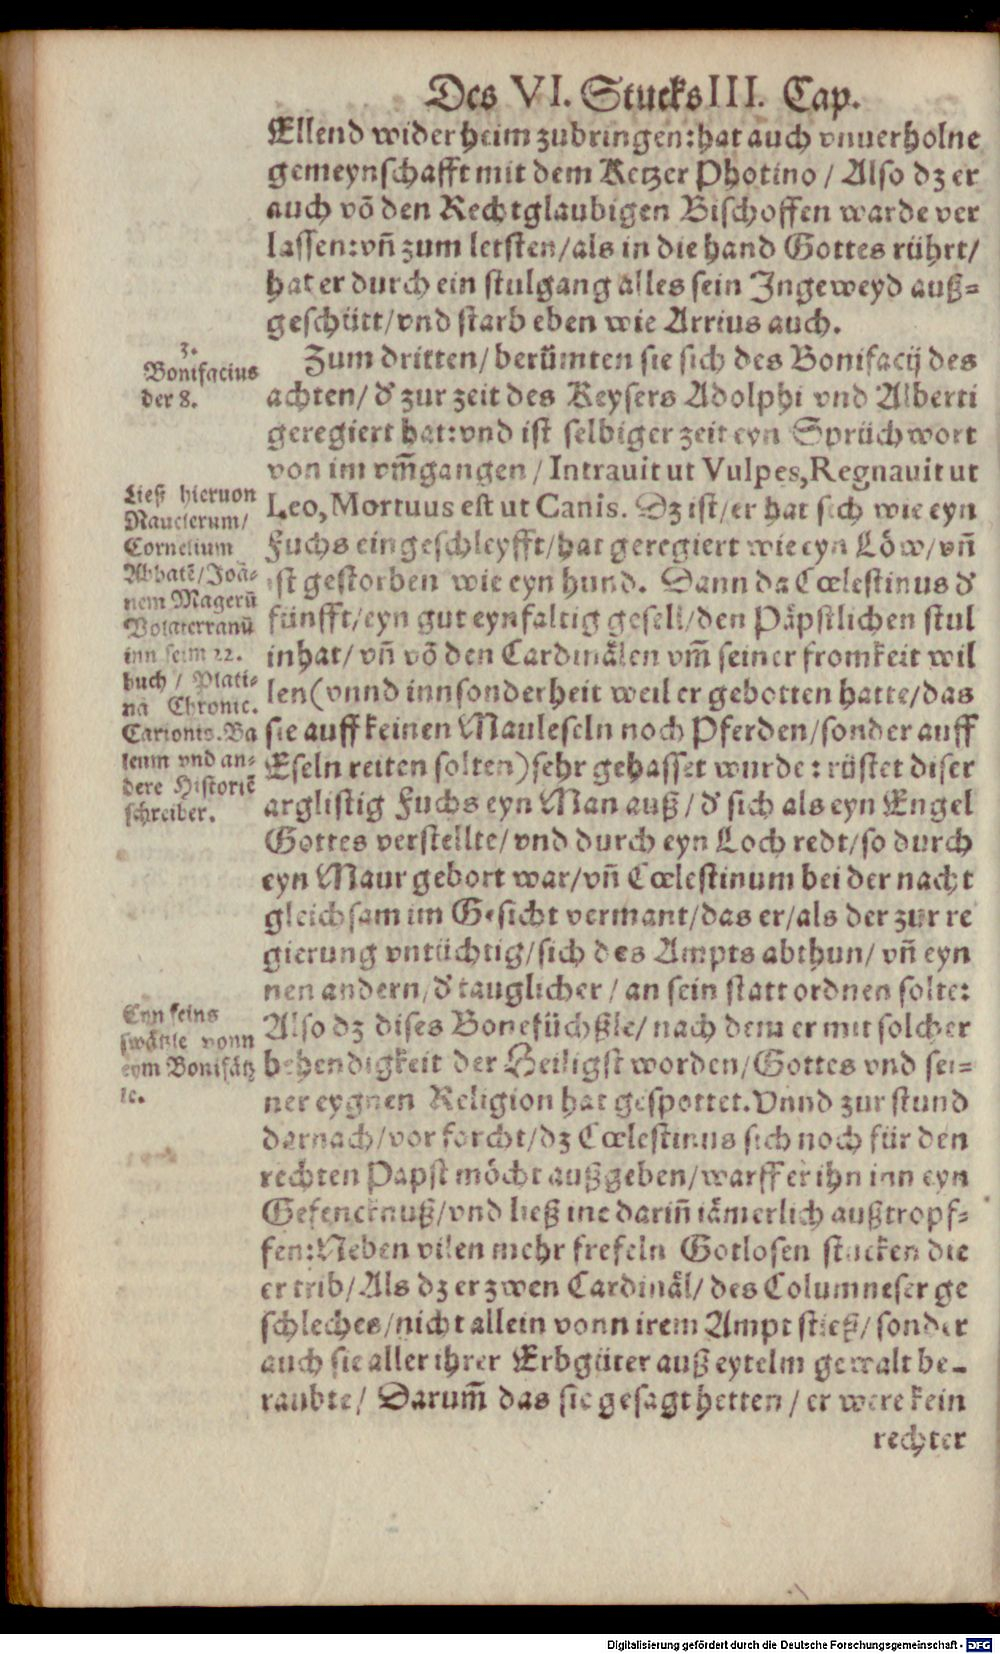 Des VI. Stucks III. Cap.
Ellend wider heim zubringen: hat auch vnuerholne
gemeynschafft mit dem Ketzer Photino / Also dz er
auch võ den Rechtglaubigen Bischoffen warde ver
lassen: vñ zum letsten / als in die hand Gottes rührt /
hat er durch ein stulgang alles sein Ingeweyd auß=
geschütt / vnd starb eben wie Arrius auch.
3.
Bonifacius
der 8.
Zum dritten / berümten sie sich des Bonifacij des
achten / d' zur zeit des Keysers Adolphi vnd Alberti
geregiert hat: vnd ist selbiger zeit eyn Sprüchwort
von im vm̃gangen / Intrauit ut Vulpes, Regnauit ut
Leo, Mortuus est ut Canis. Dz ist / er hat sich wie eyn
Fuchs eingeschleyfft / hat geregiert wie eyn Löw / vñ
ist gestorben wie eyn hund. Dann da Cœlestinus d'
fünfft / eyn gut eynfaltig gesell / den Päpstlichen stul
inhat / vñ võ den Cardinälen vm̃ seiner fromkeit wil
len (vnnd innsonderheit weil er gebotten hatte / das
sie auff keinen Mauleseln noch Pferden / sonder auff
Eseln reiten solten) sehr gehasset wurde: rüstet diser
arglistig Fuchs eyn Man auß / d' sich als eyn Engel
Gottes verstellte / vnd durch eyn Loch redt / so durch
eyn Maur gebort war / vñ Cœlestinum bei der nacht
gleichsam im Gesicht vermant / das er / als der zur re
gierung vntüchtig / sich des Ampts abthun / vñ eyn
nen andern / d' tauglicher / an sein statt ordnen solte:
Also dz dises Bonefüchßle / nach dem er mit solcher
behendigkeit der Heiligst worden / Gottes vnd sei=
ner eygnen Religion hat gespottet. Vnnd zur stund
darnach / vor forcht / dz Cœlestinus sich noch für den
rechten Papst möcht außgeben / warff er ihn inn eyn
Gefencknuß / vnd ließ ine dariñ iämerlich außtropf=
fen: Neben vilen mehr frefeln Gotlosen stucken die
er trib / Als dz er zwen Cardinäl / des Columneser ge
schleches / nicht allein vonn irem Ampt stieß / sonder
auch sie aller ihrer Erbgüter auß eytelm gewalt be=
raubte / Darum̃ das sie gesagt hetten / er were kein
rechter
Ließ hieruon
Nauclerum /
Cornelium
Abbatẽ / Joã=
nem Magerũ
Volaterranũ
inn seim 22.
buch / Plati=
na Chronic.
Carionis. Ba
leum vnd an=
dere Historiẽ
schreiber.
Eyn feins
swätzle vonn
eym Bonifätz
le.
Digitalisierung gefördert durch die Deutsche Forschungsgemeinschaft - DFG